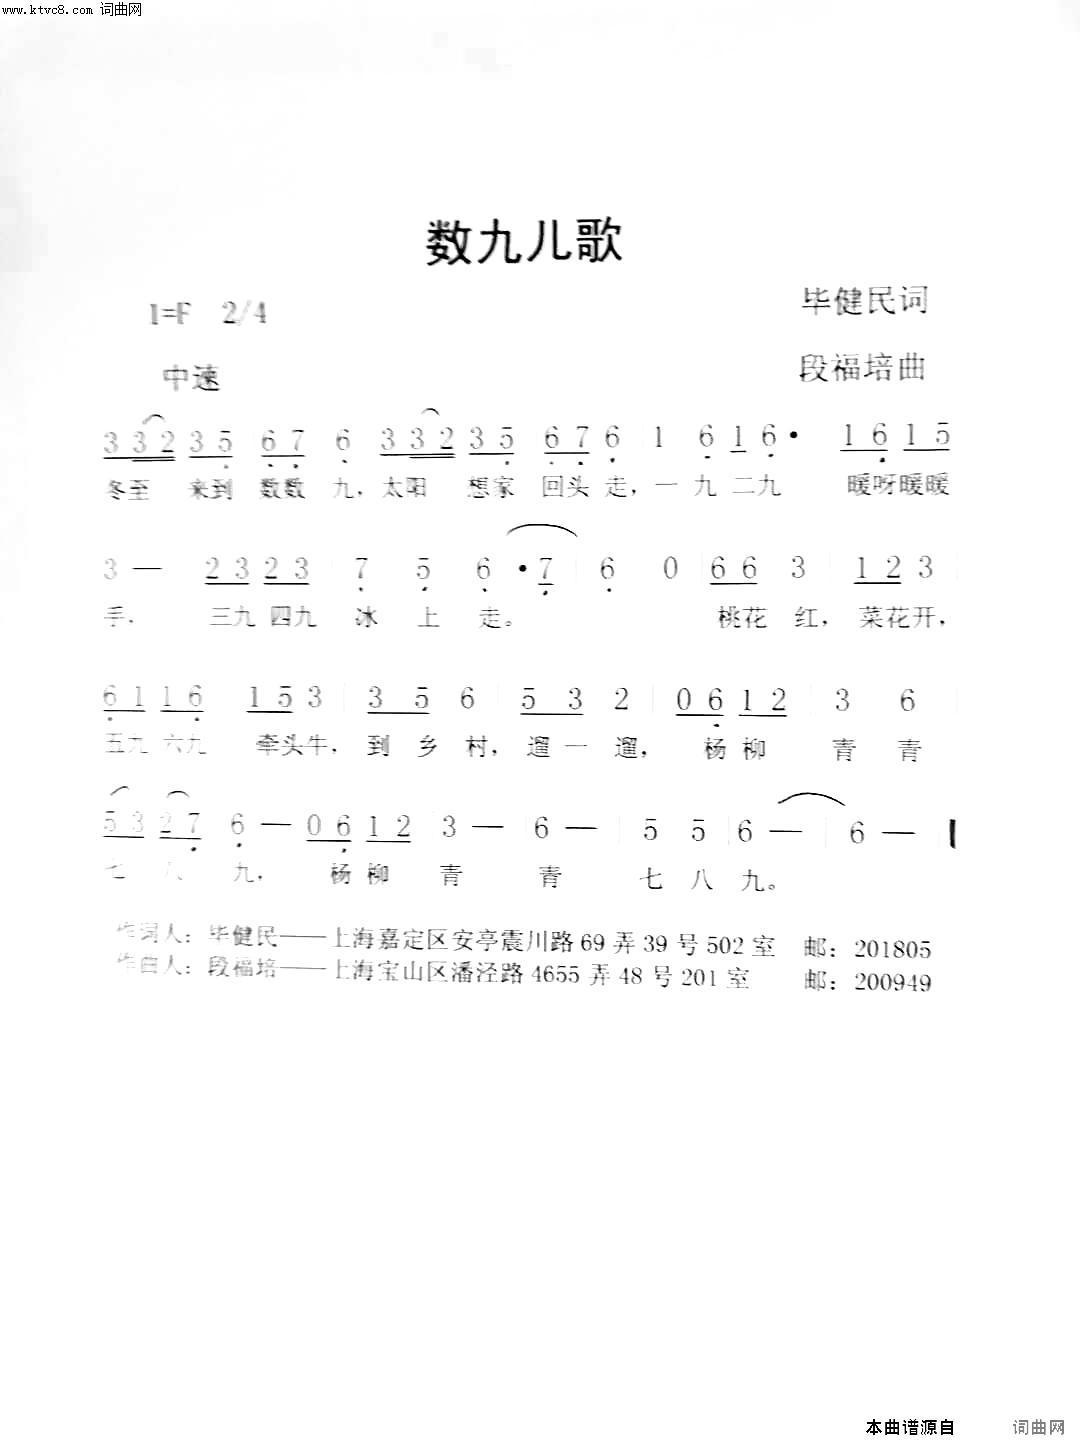 www.ktvc8.com 词曲网
数九儿歌
1=F 2/4
毕健民词
中速
段福培曲
3 3 2 3 5 6 7 6 3 3 2 3 5 6 7 6 1 6 1 6 · 1 6 1 5
冬至 来到 数数 九，太阳 想家 回头 走，一 九 二九 暖呀暖暖
3 — 2 3 2 3 7 5 6 · 7 6 0 6 6 3 1 2 3
手， 三九 四九 冰 上 走。 桃花 红，菜花开，
6 1 1 6 1 5 3 3 5 6 5 3 2 0 6 1 2 3 6
五九 六九 牵头牛，到 乡 村，遛 一 遛， 杨 柳 青 青
5 3 2 7 6 — 0 6 1 2 3 — 6 — 5 5 6 — 6 —
七 八 九， 杨 柳 青 青 七 八 九。
作词人：毕健民——上海嘉定区安亭震川路 69 弄 39 号 502 室 邮：201805
作曲人：段福培——上海宝山区潘泾路 4655 弄 48 号 201 室 邮：200949
本曲谱源自 词曲网